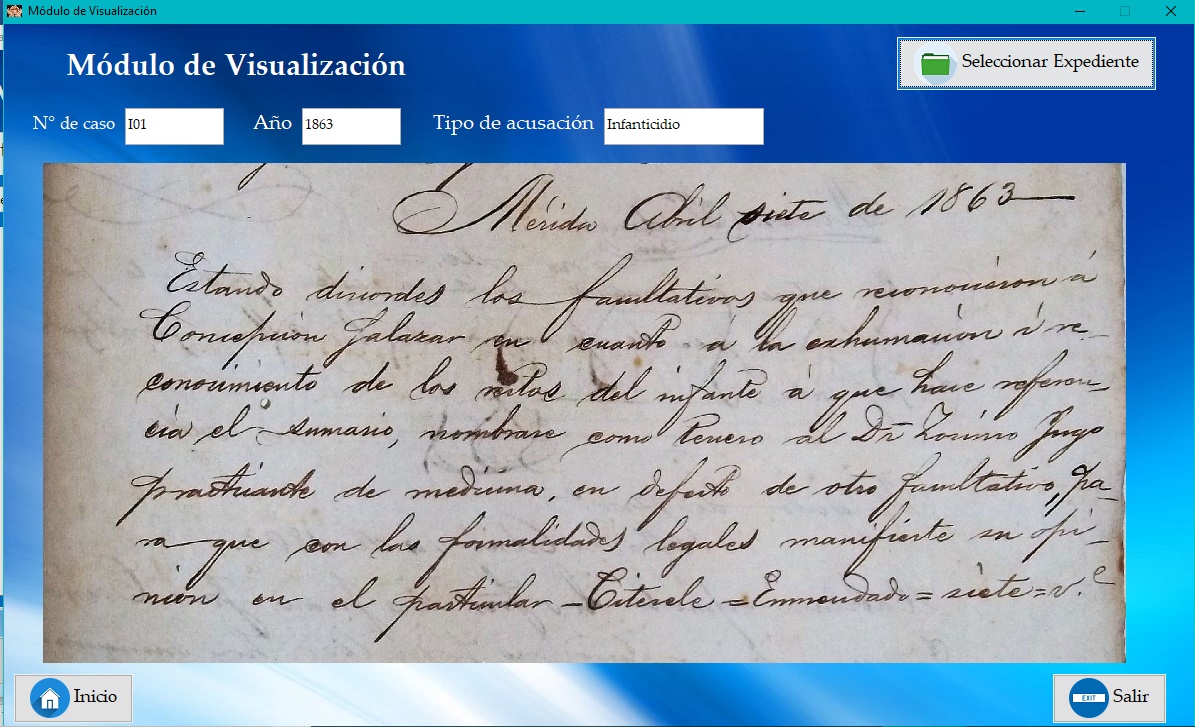 Módulo de Visualización
Módulo de Visualización
Seleccionar Expediente
N° de caso I01 Año 1863 Tipo de acusación Infanticidio
Mérida Abril siete de 1863
Estando discordes los facultativos que reconocieron á
Concepción Salazar en cuanto á la exhumación i re-
conocimiento de los restos del infante á que hace referen-
cia el sumario, nombrase como Perito al Dr Zoilo Jugo
practicante de medicina, en defecto de otro facultativo, pa-
ra que con las formalidades legales manifieste su opi-
nión en el particular - Citesele = Enmendado = siete = v.e
Inicio
EXIT Salir